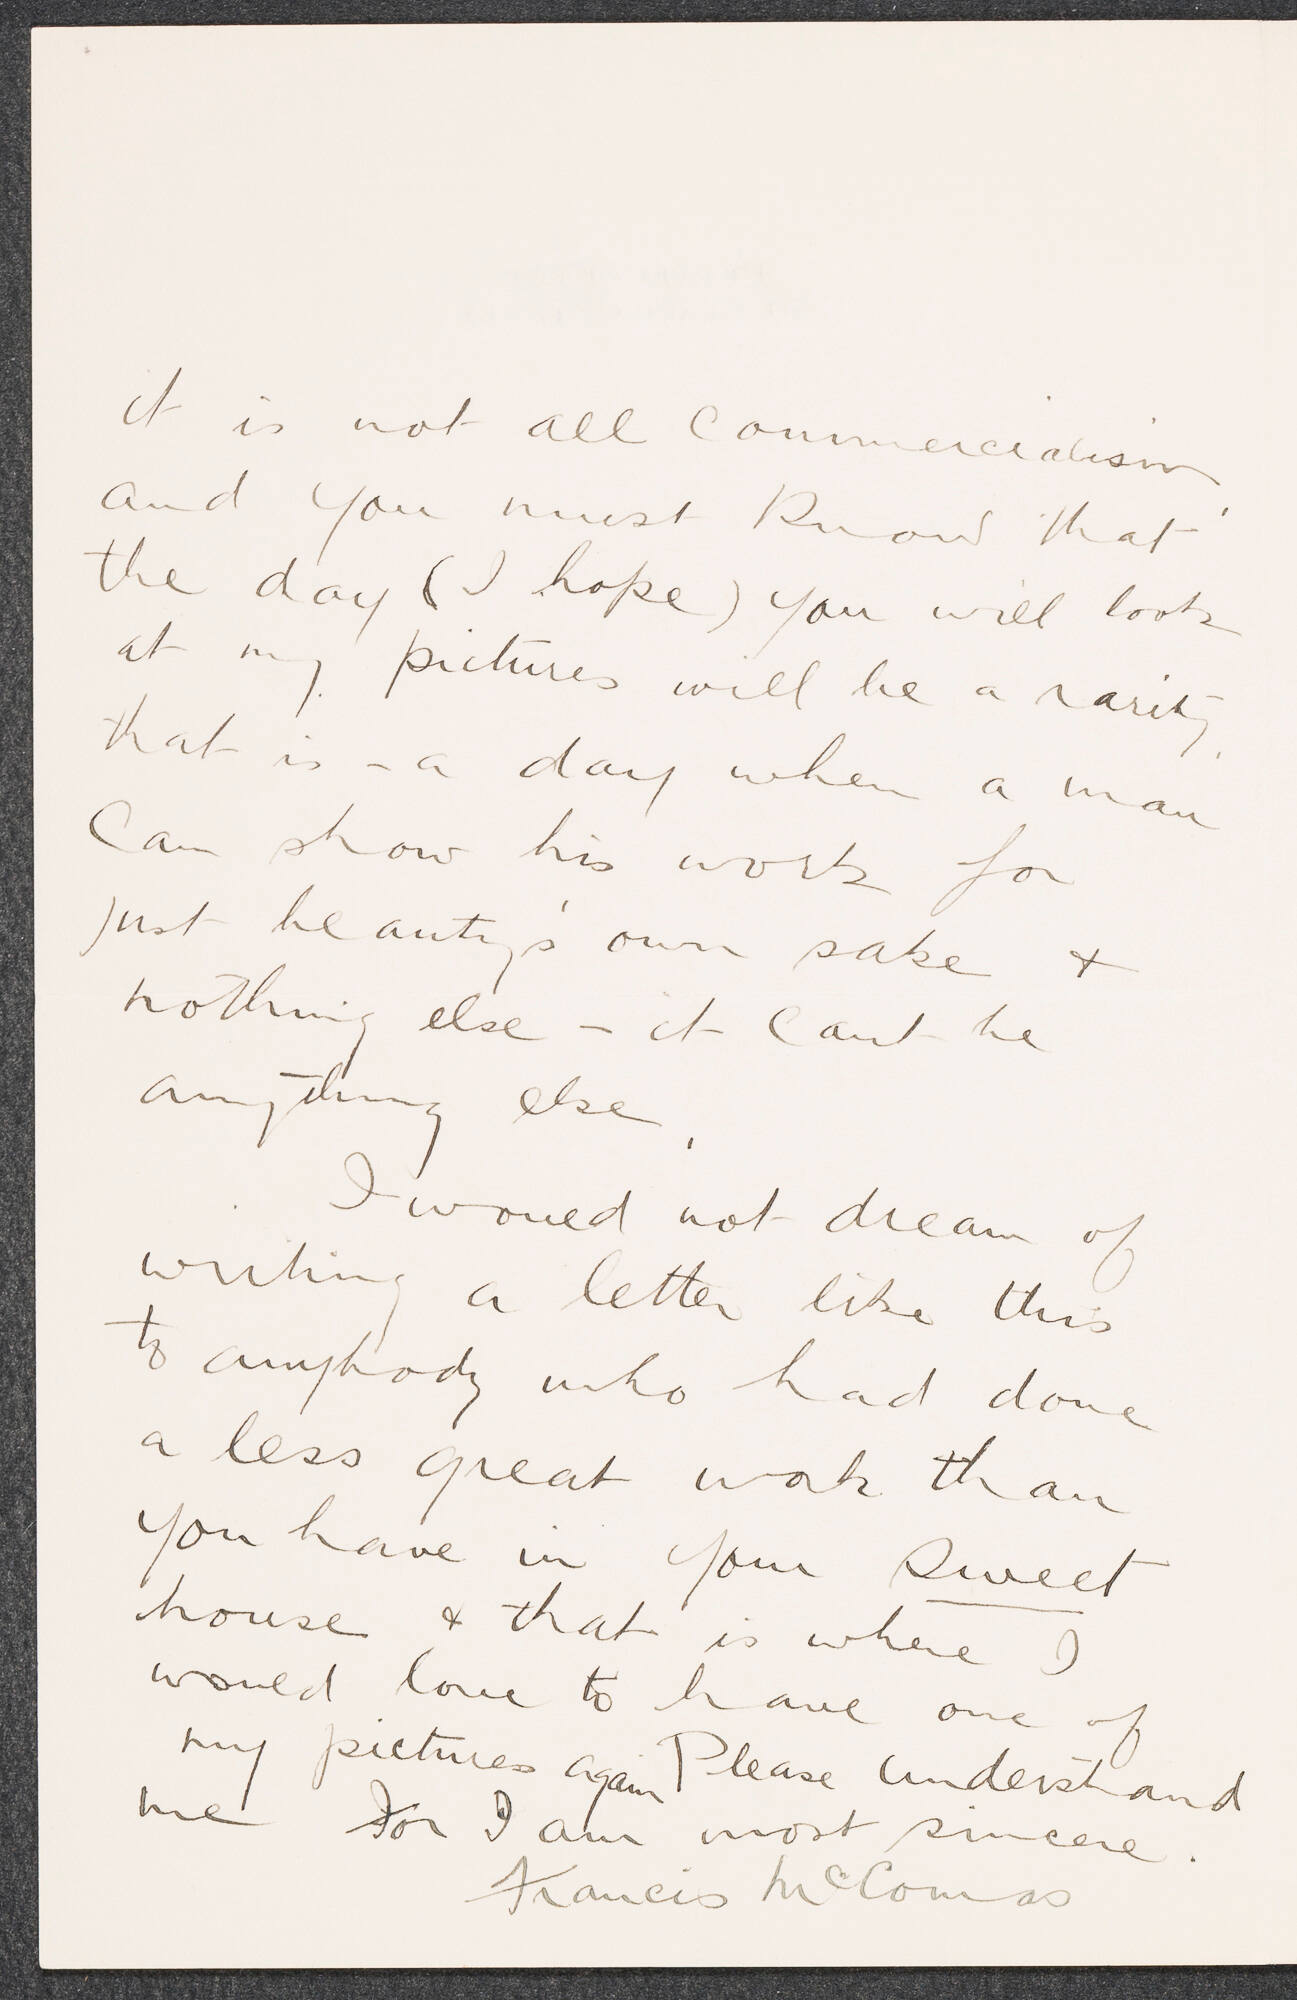 it is not all commercialism
and you must know that
the day (I hope) you will look
at my pictures will be a rarity,
that is - a day when a man
can show his work for
just beauty's own sake &
nothing else - it cant be
anything else.
I would not dream of
writing a letter like this
to anybody who had done
a less great work than
you have in your sweet
house & that is where I
would love to have one of
my pictures again Please understand
me for I am most sincere.
Francis McComas